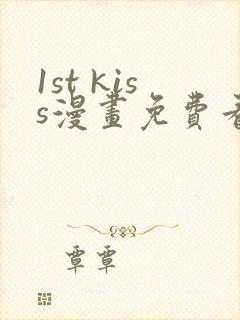 1st kis
s漫畫免費看
覃覃